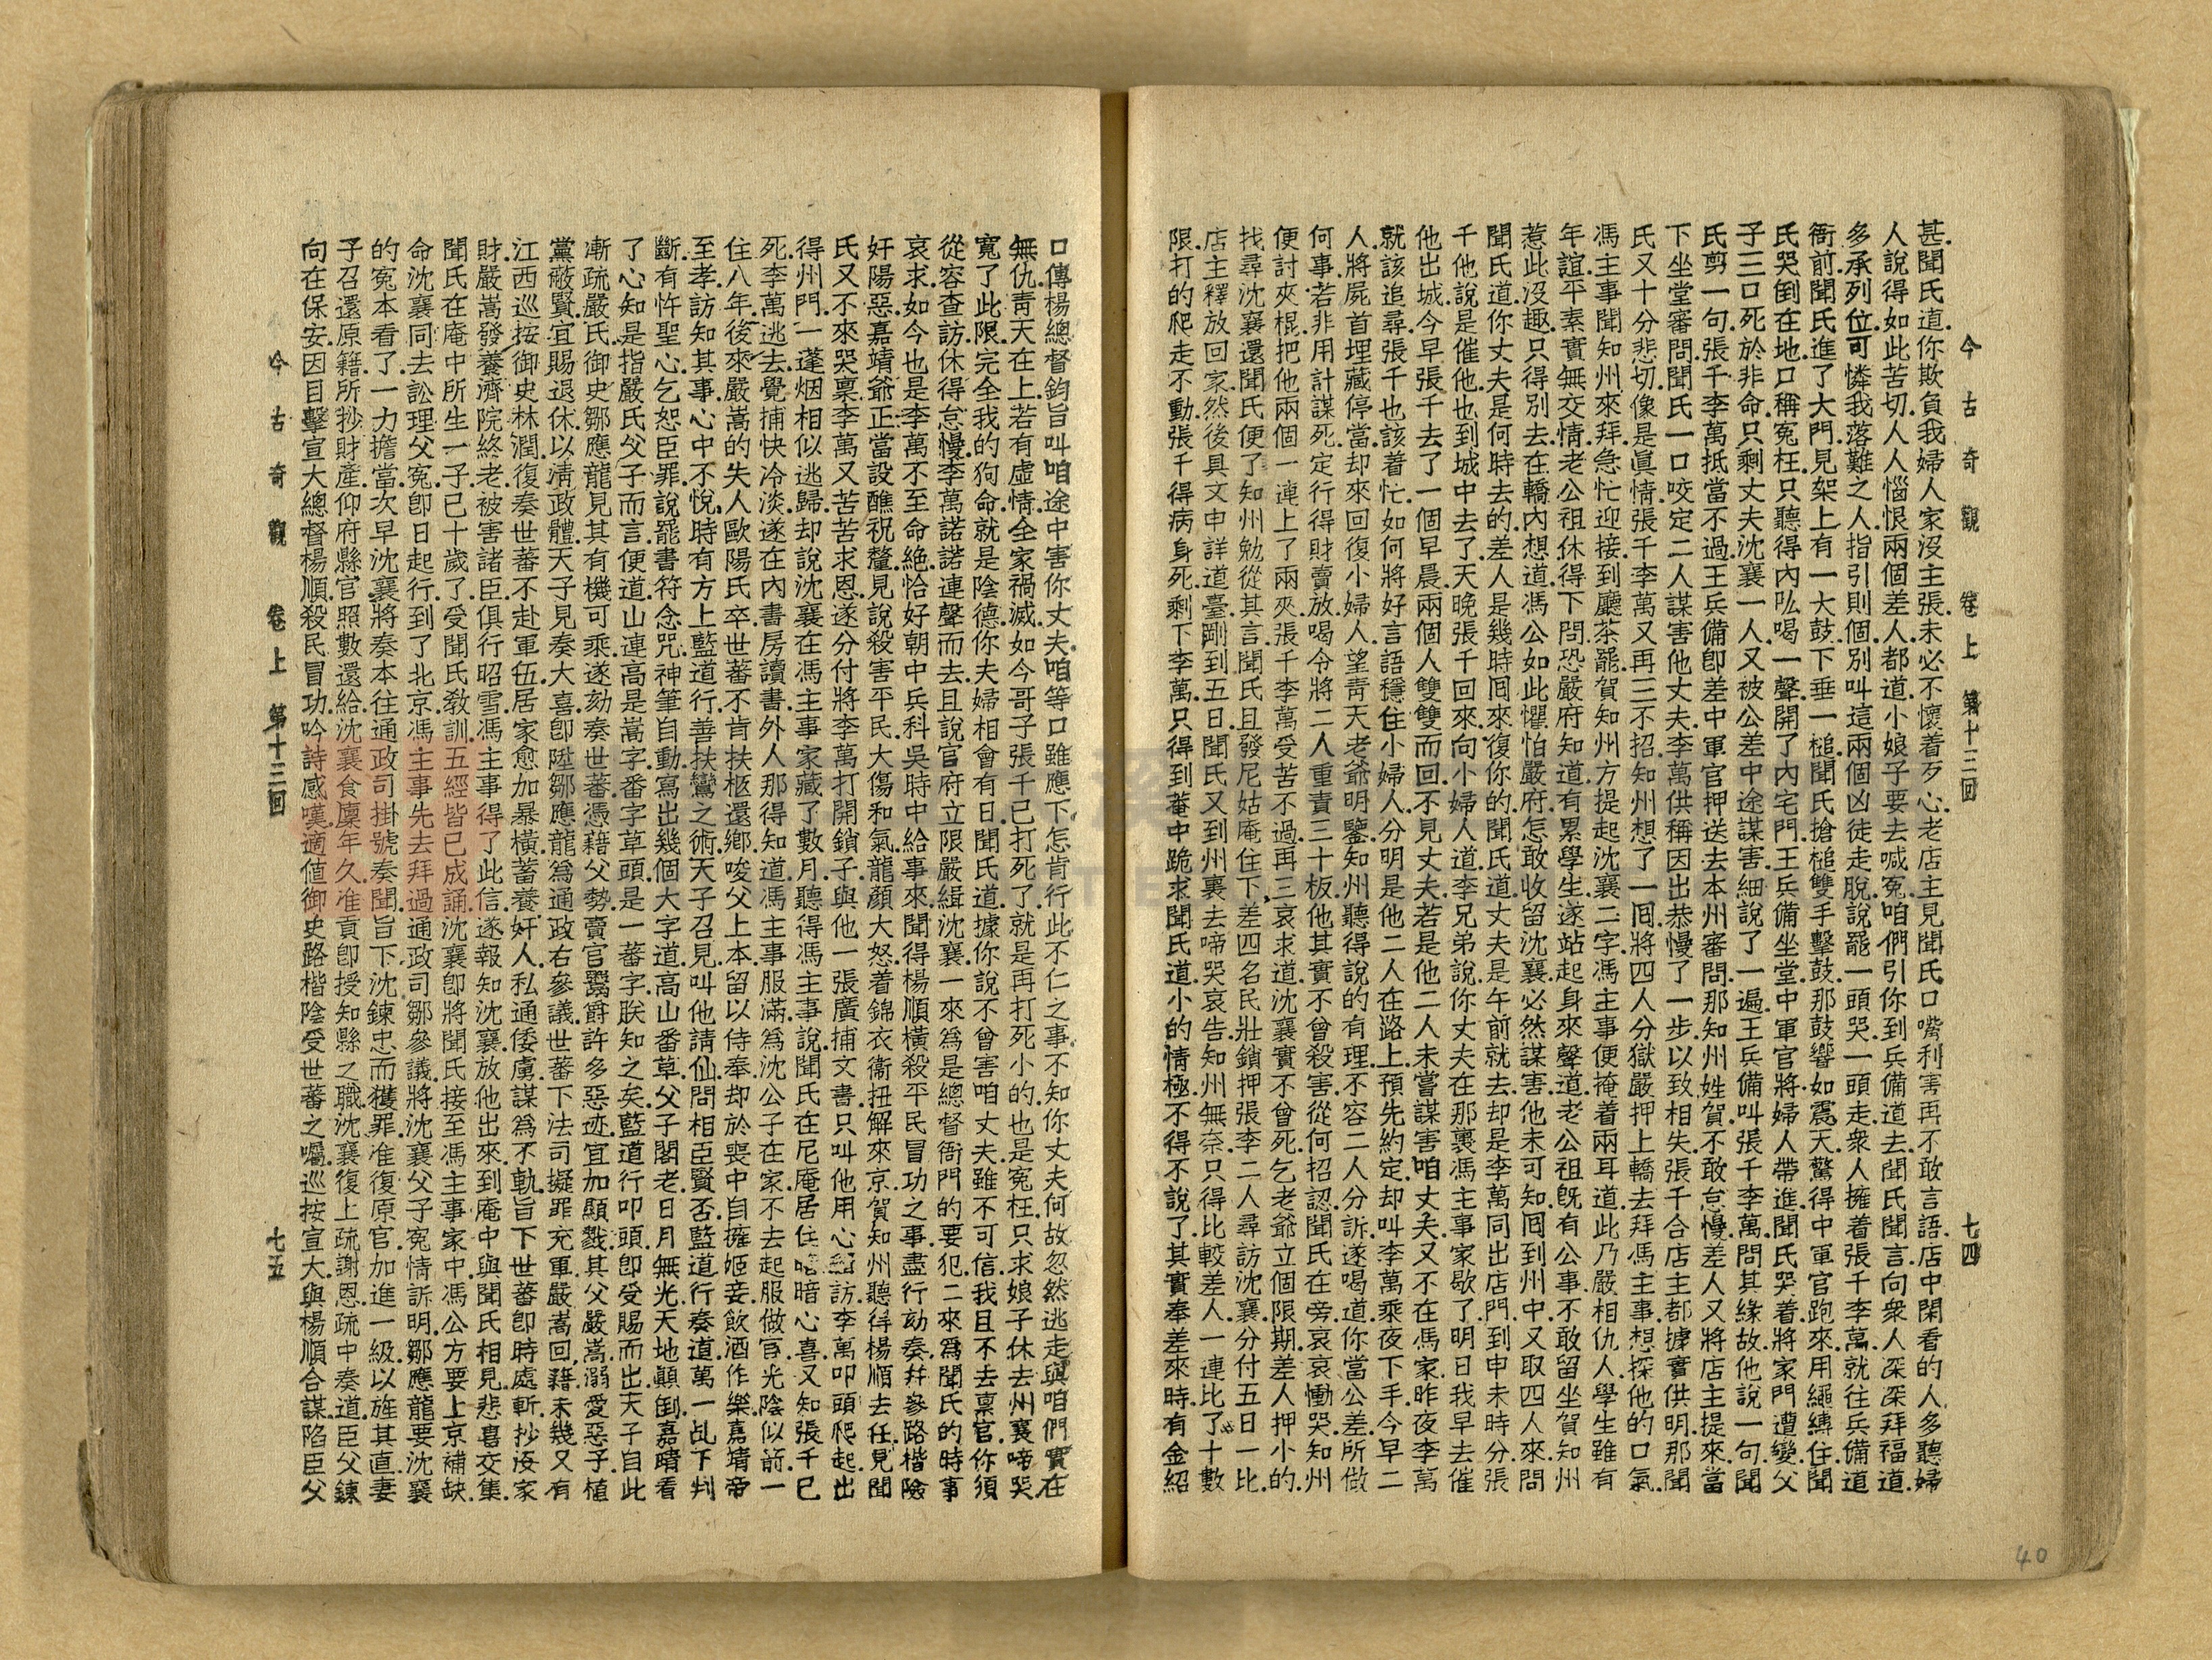 今古奇觀 卷上 第十三回 七四
甚.聞氏道.你欺負我婦人家沒主張.未必不懷着歹心.老店主見聞氏口嘴利害.再不敢言語.店中閑看的人多聽婦
人說得如此苦切.人人惱恨兩個差人.都道.小娘子要去喊冤.咱們引你到兵備道去.聞氏聞言.向衆人深深拜福道.
多承列位可憐我落難之人.指引則個.別叫這兩個凶徒走脫.說罷.一頭哭.一頭走.衆人擁着張千李萬.就往兵備道
衙前.聞氏進了大門.見架上有一大鼓.下垂一槌.聞氏搶槌雙手擊鼓.那鼓響如震天.驚得中軍官跑來.用繩縛住.聞
氏哭倒在地.口稱冤枉.只聽得內吆喝一聲.開了內宅門.王兵備坐堂.中軍官將婦人帶進.聞氏哭着將家門遭變.父
子三口死於非命.只剩丈夫沈襄一人.又被公差中途謀害.細說了一遍.王兵備叫張千李萬.問其緣故.他說一句.聞
氏剪一句.張千李萬抵當不過.王兵備即差中軍官押送去本州審問.那知州姓賀.不敢怠慢.差人又將店主提來.當
下坐堂審問.聞氏一口咬定二人謀害他丈夫.李萬供稱因出恭慢了一步.以致相失.張千合店主都據實供明.那聞
氏又十分悲切.像是眞情.張千李萬又再三不招.知州想了一囘.將四人分獄嚴押.上轎去拜馮主事.想探他的口氣.
馮主事聞知州來拜.急忙迎接到廳.茶罷.賀知州方提起沈襄二字.馮主事便掩着兩耳道.此乃嚴相仇人.學生雖有
年誼.平素實無交情.老公祖休得下問.恐嚴府知道.有累學生.遂站起身來聲道.老公祖旣有公事.不敢留坐.賀知州
惹此沒趣.只得別去.在轎內想道.馮公如此懼怕嚴府.怎敢收留沈襄.必然謀害.他未可知.囘到州中.又取四人來.問
聞氏道.你丈夫是何時去的.差人是幾時囘來.復你的.聞氏道.丈夫是午前就去.却是李萬同出店門.到申未時分.張
千他說是催他也到城中去了.天晚.張千回來.向小婦人道.李兄弟說.你丈夫在那裏馮主事家歇了.明日我早去催
他出城.今早張千去了一個早晨.兩個人雙雙而回.不見丈夫.若是他二人未嘗謀害.咱丈夫又不在馮家.昨夜李萬
就該追尋.張千也該着忙.如何將好言語穩住小婦人.分明是他二人在路上預先約定.却叫李萬乘夜下手.今早二
人.將屍首埋藏停當.却來回復小婦人.望青天老爺明鑒.知州聽得說的有理.不容二人分訴.遂喝道.你當公差所做
何事.若非用計謀死.定行得財賣放.喝令將二人重責三十板.他其實不曾殺害.從何招認.聞氏在旁.哀哀慟哭.知州
便討夾棍.把他兩個一連上了兩夾.張千李萬受苦不過.再三哀求道.沈襄實不曾死.乞老爺立個限期.差人押小的.
找尋沈襄.還聞氏便了.知州勉從其言.聞氏且發尼姑庵住下.差四名民壯.鎖押張李二人尋訪沈襄.分付五日一比.
店主釋放回家.然後具文申詳道臺.剛到五日.聞氏又到州裏去啼哭哀告.知州無奈.只得比較差人.一連比了十數
限.打的爬走不動.張千得病身死.剩下李萬.只得到菴中跪求聞氏道.小的情極.不得不說了.其實奉差來時.有金紹
口傳楊總督鈞旨.叫咱途中害你丈夫.咱等口雖應下.怎肯行此不仁之事.不知你丈夫何故忽然逃走.與咱們實在
無仇.青天在上.若有虛情.全家禍滅.如今哥子張千已打死了.就是再打死小的.也是冤枉.只求娘子休去州裏啼哭.
寬了此限.完全我的狗命.就是陰德.你夫婦相會有日.聞氏道.據你說.不曾害咱丈夫.雖不可信.我且不去禀官.你須
從容查訪.休得怠慢.李萬諾諾連聲而去.且說官府立限嚴緝沈襄.一來爲是總督衙門的要犯.二來爲聞氏的時事
哀求.如今也是李萬不至命絶.恰好朝中兵科吳時中給事來.聞得楊順橫殺平民冒功之事.盡行劾奏.幷參路楷險
奸陽惡.嘉靖爺正當設醮祝釐.見說殺害平民.大傷和氣.龍顏大怒.着錦衣衞扭解來京.賀知州聽得楊順去任.見聞
氏又不來哭禀.李萬又苦苦求恩.遂分付將李萬打開鎖子.與他一張廣捕文書.只叫他用心緝訪.李萬叩頭爬起.出
得州門.一蓬烟相似逃歸.却說沈襄在馮主事家藏了數月.聽得馮主事說.聞氏在尼庵居住.暗暗心喜.又知張千已
死.李萬逃去.覺捕快冷淡.遂在內書房讀書.外人那得知道.馮主事服滿.爲沈公子在家.不去起服做官.光陰似箭.一
住八年.後來嚴嵩的失人歐陽氏卒.世蕃不肯扶柩還鄉.唆父上本.留以侍奉.却於喪中.自擁姬妾.飲酒作樂.嘉靖帝
至孝.訪知其事.心中不悅.時有方上監道行.善扶鸞之術.天子召見.叫他請仙.問相臣賢否.監道行奏道.萬一乩下判
斷.有忤聖心.乞恕臣罪.說罷.書符念咒.神筆自動.寫出幾個大字道.高山番草.父子閣老.日月無光.天地顚倒.嘉靖看
了.心知是指嚴氏父子而言.便道.山連高是嵩字.番字草頭.是一蕃字.朕知之矣.監道行叩頭.卽受賜而出.天子自此
漸疏嚴氏.御史鄒應龍見其有機可乘.遂劾奏世蕃憑藉父勢.賣官鬻爵.許多惡迹.宜加顯戮.其父嚴嵩溺愛惡子.植
黨蔽賢.宜賜退休.以淸政體.天子見奏大喜.卽陞鄒應龍爲通政右參議.世蕃下法司.擬罪充軍.嚴嵩回籍.未幾.又有
江西巡按御史林潤.復奏世蕃不赴軍伍.居家愈加暴橫.蓄養奸人.私通倭虜.謀爲不軌.旨下.世蕃卽時處斬.抄沒家
財.嚴嵩發養濟院終老.被害諸臣俱行昭雪.馮主事得了此信.遂報知沈襄.放他出來.到庵中與聞氏相見.悲喜交集.
聞氏在庵中所生一子.已十歲了.受聞氏敎訓.五經皆已成誦.沈襄卽將聞氏接至馮主事家中.馮公方要上京補缺.
命沈襄同去訟理父冤.卽日起行.到了北京.馮主事先去拜過通政司鄒參議.將沈襄父子冤情訴明.鄒應龍要沈襄
的冤本看了.一力擔當.次早沈襄將奏本往通政司掛號.奏聞.旨下.沈鍊忠而獲罪.准復原官.加進一級.以旌其直.妻
子召還原籍.所抄財產.仰府縣官照數還給.沈襄食廩年久.准貢.卽授知縣之職.沈襄復上疏謝恩.疏中奏道.臣父鍊
向在保安.因目擊宣大總督楊順.殺民冒功.吟詩感嘆.適値御史路楷.陰受世蕃之囑.巡按宣大.與楊順合謀.陷臣父
今古奇觀 卷上 第十三回 七五
40